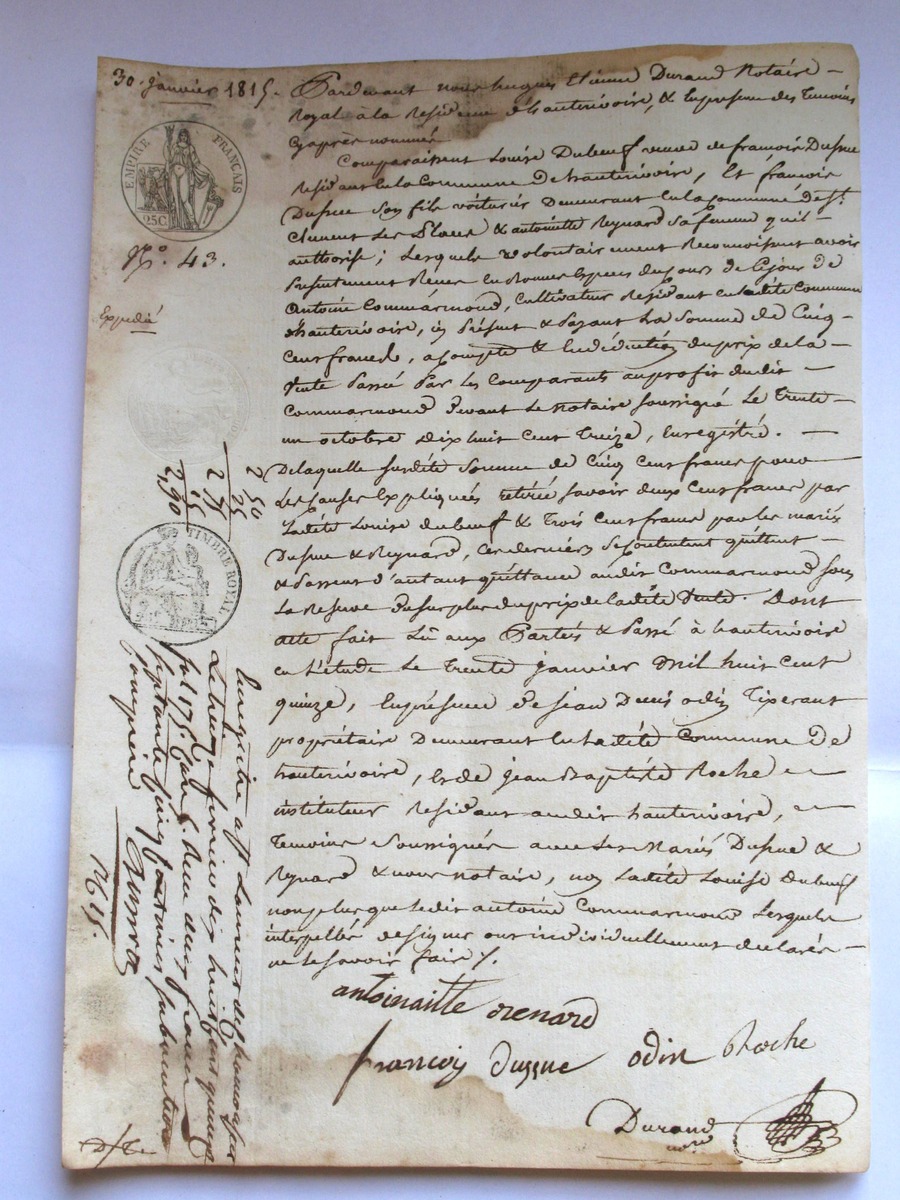 30. janvier 1815.
EMPIRE FRANÇAIS
25C
N.º 43.
Expedié
2 50
25
2 75
15
2,90
TIMBRE ROYAL
Pardevant nous hugues Etienne Durand Notaire
Royal à la Residence d'hauterivoire, & En presence des Temoins
Cyaprès nommés
Comparaissent Louise Dubeuf veuve de francois Dusuc
Residant en la Commune De hauterivoire, Et francois
Dusuc son fils voiturier Demeurant en la Commune de St.
Clement Les Places & antoinette Reynard sa femme qu'il
authorise; Lesquels volontairement Reconnoissent avoir
presentement Recu en Bonnes Especes du jours de Ce jour de
Antoine Commarmond, Cultivateur Residant en la dite Commune
d'hauterivoire, ici Présent & Payant La Somme de Cinq
Cent francs, acompte & En déduction du prix de la
vente Passé Par les Comparants au profit dudit
Commarmond Devant Le Notaire soussigné Le Trente
un octobre Dix huit Cent Treize, Enregistré.
De laquelle susdite somme de Cinq Cent francs pour
Les Causes Expliquées retirée savoir deux Cent francs par
Ladite Louise dubeuf & Trois Cent francs par les mariés
Dusuc & Reynard, Ces derniers se Contentent quittent
& Passent d'autant quittance audit Commarmond sous
La Reserve du surplus du prix de la dite vente. Dont
acte fait Lû aux Parties & Passé à hauterivoire
en L'étude Le Trente janvier Mil huit Cent
quinze, En présence de jean Denis odin Tixerant
propriétaire Demeurant en la dite Commune De
hauterivoire, & de jean Baptiste Roche
instituteur Residant audit hauterivoire,
Temoins Soussignés avec Les Mariés Dusuc &
Reynard & nous notaire, non Ladite Louise Dubeuf
non plus que Ledit antoine Commarmond Lesquels
interpellés de signer ont individuellement declarés
ne Le savoir faire /.
antoinaitte renard
francois dussuc odin Roche
Durand
nore
Enregistré a St Laurent de chamousset
Le threize fevrier dix huit Cent quinze
fol. 175 Case 6. Recu deux francs
septante Cinq Centimes subvention
Comprise